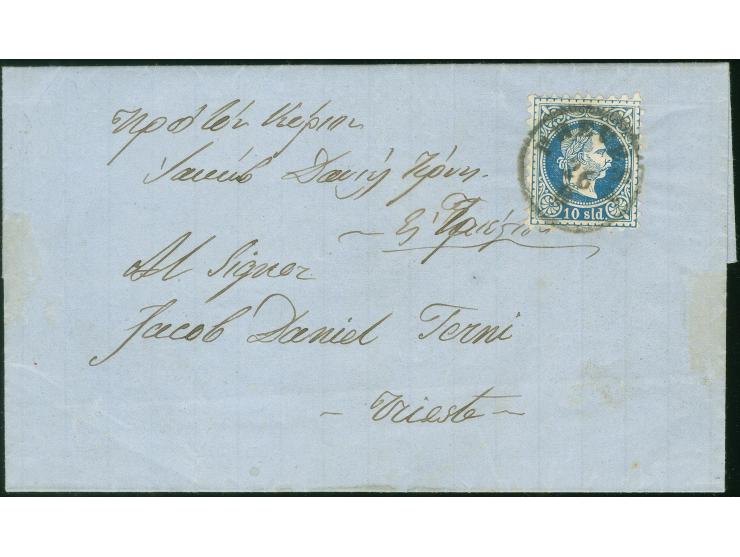 Πρὸς τὸν Κύριον
Ἰακὼβ Δανιὴλ Τέρνη
Εἰς Τριέστιον
Al Signor
Jacob Daniel Terni
Trieste
10 sld.